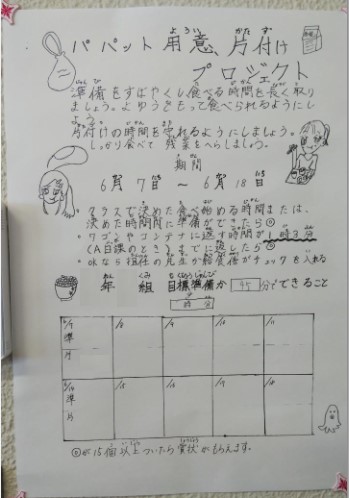 パパット用意、片付け
プロジェクト
準備をすばやくし食べる時間を長く取り
ましょう。よゆうをもって食べられるようにし
よう。
片付けの時間を守れるようにしましょう。
しっかり食べて残菜をへらしましょう。
期間
6月7日～6月18日
・クラスで決めた食べ始める時間または、
決めた時間内に準備ができたら◎
・ワゴンやコンテナに返す時間が1時3分
(A日課のとき)までに返したら◎
・OKなら担任の先生か給食係がチェックを入れる
年 組 目標準備が 45分でできること
時 分
6/7 /8 /9 /10 /11
準
片
6/14 /15 /16 /17 /18
準
片
◎が15個以上ついたら賞状がもらえます。